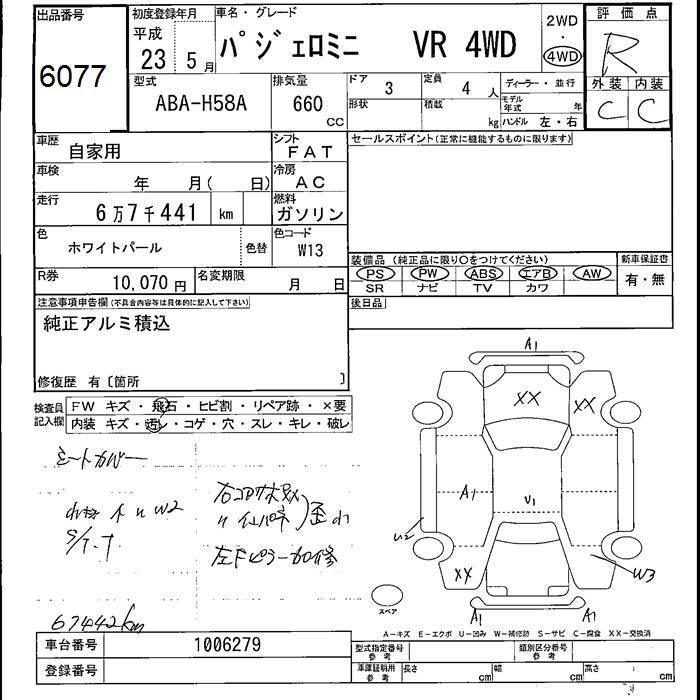 出品番号 初度登録年月 車名・グレード 2WD 評価点
6077 平成 23年 5月 パジェロミニ VR 4WD ・ 4WD R
型式 排気量 ドア 定員 ディーラー・並行 外装 内装
ABA-H58A 660 CC 3 4人 モデル年式 年 C C
形状 積載 kg ハンドル 左・右
車歴 自家用 シフト FAT セールスポイント(正常に機能するものに限ります)
車検 年 月( 日) 冷房 AC
走行 6万7千441 km 燃料 ガソリン
色 ホワイトパール 色替 色コード W13
装備品 (純正品に限り○をつけてください) 新車保証書
R券 10,070円 名変期限 月 日 PS PW ABS エアB AW 有・無
SR ナビ TV カワ
注意事項申告欄(不具合内容等は具体的に記入して下さい) 後日品
純正アルミ積込
修復歴 有〔箇所 〕
検査員記入欄 FW キズ・飛石・ヒビ割・リペア跡・×要
内装 キズ・汚レ・コゲ・穴・スレ・キレ・破レ
シートカバー
W2
左Fピラー加修
67442km
A1
XX XX
A1 U1
U2
XX W3
A1 A1
スペア
A-キズ E-エクボ U-凹み W-補修跡 S-サビ C-腐食 XX-交換済
車台番号 1006279 型式指定番号 参考 類別区分番号 参考
登録番号 車庫証明用 参考 長さ cm 幅 cm 高さ cm